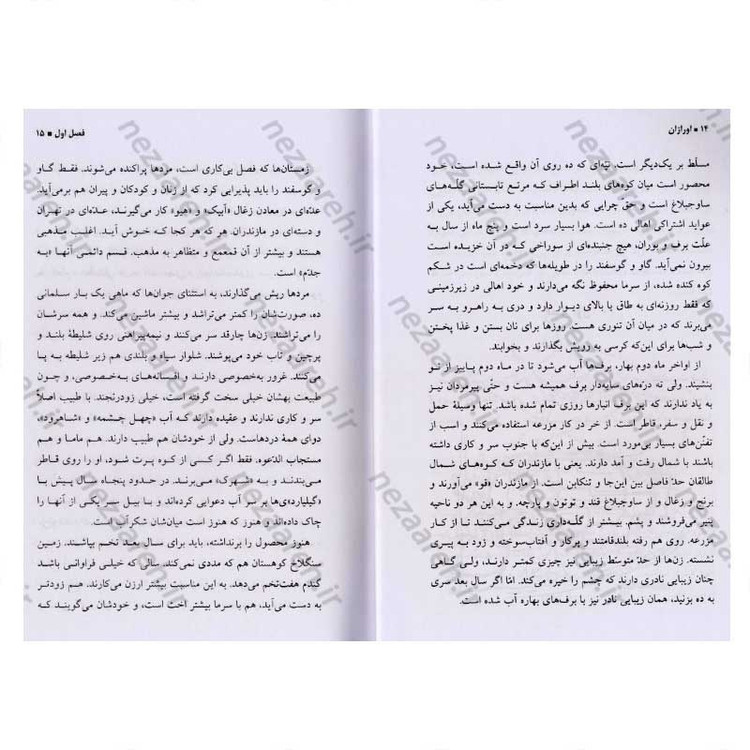 ۱۴ ■ اورازان
مسلّط بر یک‌دیگر است. تپّه‌ای که ده روی آن واقع شده است، خود
محصور است میان کوه‌های بلند اطراف کـه مـرتع تابستانی گلّه‌های
ساوجبلاغ است و حقّ چرایی که بدین مناسبت به دست می‌آید، یکی از
عواید اشتراکی اهالی ده است. هوا بسیار سرد است و پنج ماه از سال به
علّت برف و بوران، هیچ جنبنده‌ای از سوراخی کـه در آن خزیـده است
بیرون نمی‌آید. گاو و گوسفند را در طویله‌ها که دخمه‌ای است در شکم
کوه کنده شده، از سرما محفوظ نگه می‌دارند و خود اهالی در زیرزمینی
که فقط روزنه‌ای به طاق یا بالای دیـوار دارد و دری به راهـرو به سر
می‌برند که در میان آن تنوری هست. روزها برای نان بستن و غذا پختن
و شب‌ها برای این‌که کرسی به رویش بگذارند و بخوابند.
از اواخر ماه دوم بهار، برف‌ها آب می‌شود تا در ماه دوم پـاییز از نو
بنشیند. ولی ته درّه‌های سایه‌دار برف همیشه هست و حتّی پیرمردان نیـز
به یاد ندارند که این برف انبارها روزی تمام شده باشد. تنها وسیلهٔ حمل
و نقل و سفر، قاطر است. از خر در کار مزرعه استفاده می‌کنند و اسب از
تفنّن‌های بسیار بی‌مورد است. بیش از این‌که با جنوب سر و کاری داشته
باشند با شمال رفت و آمد دارند. یعنی با مازندران کـه کـوه‌های شمال
طالقان حدّ فاصل بین این‌جا و تنکابن است. از مازندران «قوه می‌آورند و
برنج و زغال و از ساوجبلاغ قند و توتون و پارچه. و به این هر دو ناحیه
پنیر می‌فروشند و پشم. بیشتر از گلّه‌داری زندگی می‌کنـند تا از کـار
مزرعه. روی هم رفته بلندقامتند و پرکار و آفتاب‌سوخته و زود بـه پیـری
نشسته. زن‌ها از حدّ متوسّط زیبایی نیز چیزی کمتر دارند، ولـی گاهی
چنان زیبایی نادری دارند که چشم را خیره می‌کند. امّا اگر سال بعد سری
به ده بزنید، همان زیبایی نادر نیز با برف‌های بهاره آب شده است.
فصل اول ■ ۱۵
زمستان‌ها که فصل بی‌کاری است، مردها پراکنده می‌شوند. فقط گاو
و گوسفند را باید پذیرایی کرد که از زنان و کودکان و پیران هم برمی‌آید.
عدّه‌ای در معادن زغال «آبیک» و «هیو» کار می‌گیرنـد، عـدّه‌ای در تهران
و دسته‌ای در مازندران. هر که هر کجا کـه خـوش آید. اغلب مـذهبی
هستند و بیشتر از آن قمعمع و متظاهر به مذهب. قسم دائمی آنها «بـه
جدّم» است.
مردها ریش می‌گذارند، به استثنای جوان‌ها که ماهی یک بـار سـلمانی
ده، صورت‌شان را کمتر می‌تراشد و بیشتر ماشین می‌کند. و همه سرشان
را می‌تراشند. زن‌ها چارقد سر می‌کنند و نیمه‌پیراهنی روی شلیطهٔ بلنـد و
پرچین و تاب خود می‌پوشند. شلوار سیاه و بلندی هم زیر شلیطه به پـا
می‌کنند. غرور به‌خصوصی دارنـد و افسـانه‌های بـه‌خصوصی، و چـون
طبیعت بهشان خیلی سخت گرفته است، خیلی زودرنجند. با طبیب اصلاً
سر و کاری ندارند و عقیده دارند کـه آب «چهـل چشـمه» و «شـاهرود»،
دوای همهٔ دردهاست. ولی از خودشان هم طبیب دارند. هـم مامـا و هـم
مستجاب الدّعوه. فقط اگـر کسی از کـوه پـرت شـود، او را روی قـاطر
می‌بندند و بـه «شهـرک» می‌برند. در حدود پنجاه سال پـیـش بـا
«گیلیارد»ی‌ها بر سر آب دعوایی کرده‌اند و بـا بیـل سـر یکـی از آنهـا را
چاک داده‌اند و هنـوز که هنوز است میان‌شان شکرآب است.
هنوز محصول را برنداشته، باید برای سـال بعـد تخـم بپاشند. زمـین
سنگلاخ کوهستان هم که مددی نمی‌کند. سالی که خیلی فراوانی باشـد
گندم هفت‌تخم می‌دهد. به این مناسبت بیشتر ارزن می‌کارند. هم زودتر
به دست می‌آید، هم با سرما بیشتر اخت است، و خودشان می‌گوینـد کـه
nezaareh.ir
nezaareh.ir
nezaareh.ir
nezaareh.ir
nezaareh.ir
nezaareh.ir